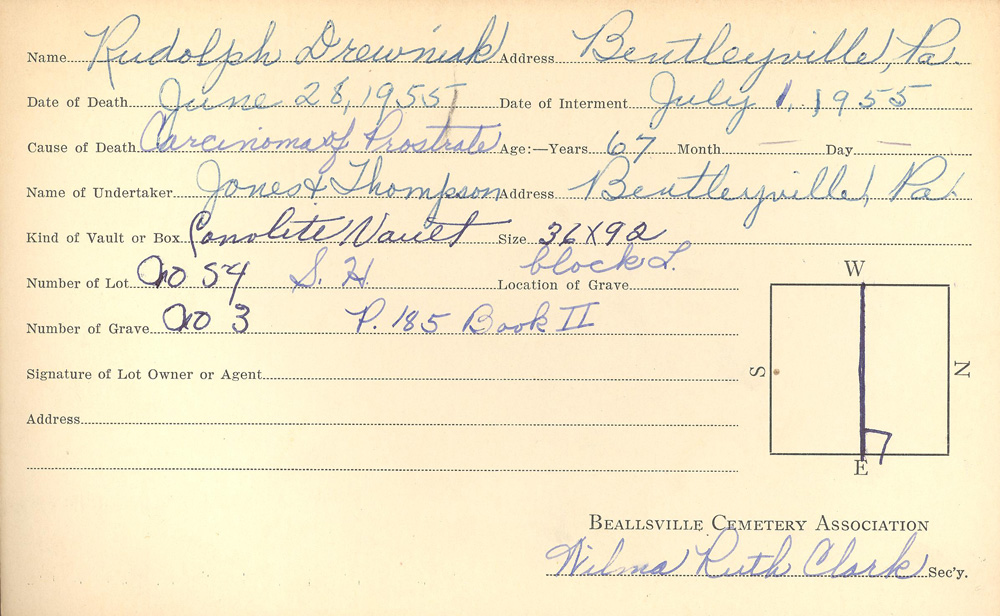 Name Rudolph Drewniak Address Bentleyville, Pa.
Date of Death June 28, 1955 Date of Interment July 1, 1955
Cause of Death Carcinoma of Prostrate Age:—Years 67 Month — Day —
Name of Undertaker Jones & Thompson Address Bentleyville, Pa.
Kind of Vault or Box Conolite Vault Size 36X92
Number of Lot No 54 S. H. Location of Grave block L.
Number of Grave No 3 P. 185 Book II
Signature of Lot Owner or Agent
Address
W
S
N
E
Beallsville Cemetery Association
Wilma Ruth Clark Sec'y.